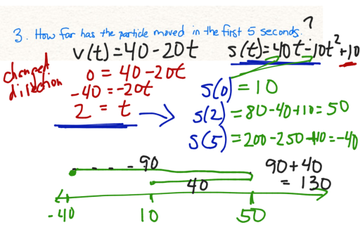 3. How far has the particle moved in the first 5 seconds?
v(t)=40-20t
s(t)=40t-10t²+10
changed direction
0 = 40-20t
-40=-20t
2 = t
s(0) = 10
s(2) = 80-40+10=50
s(5) = 200-250+10=-40
- - - 90
90+40
= 130
40
-40 10 50